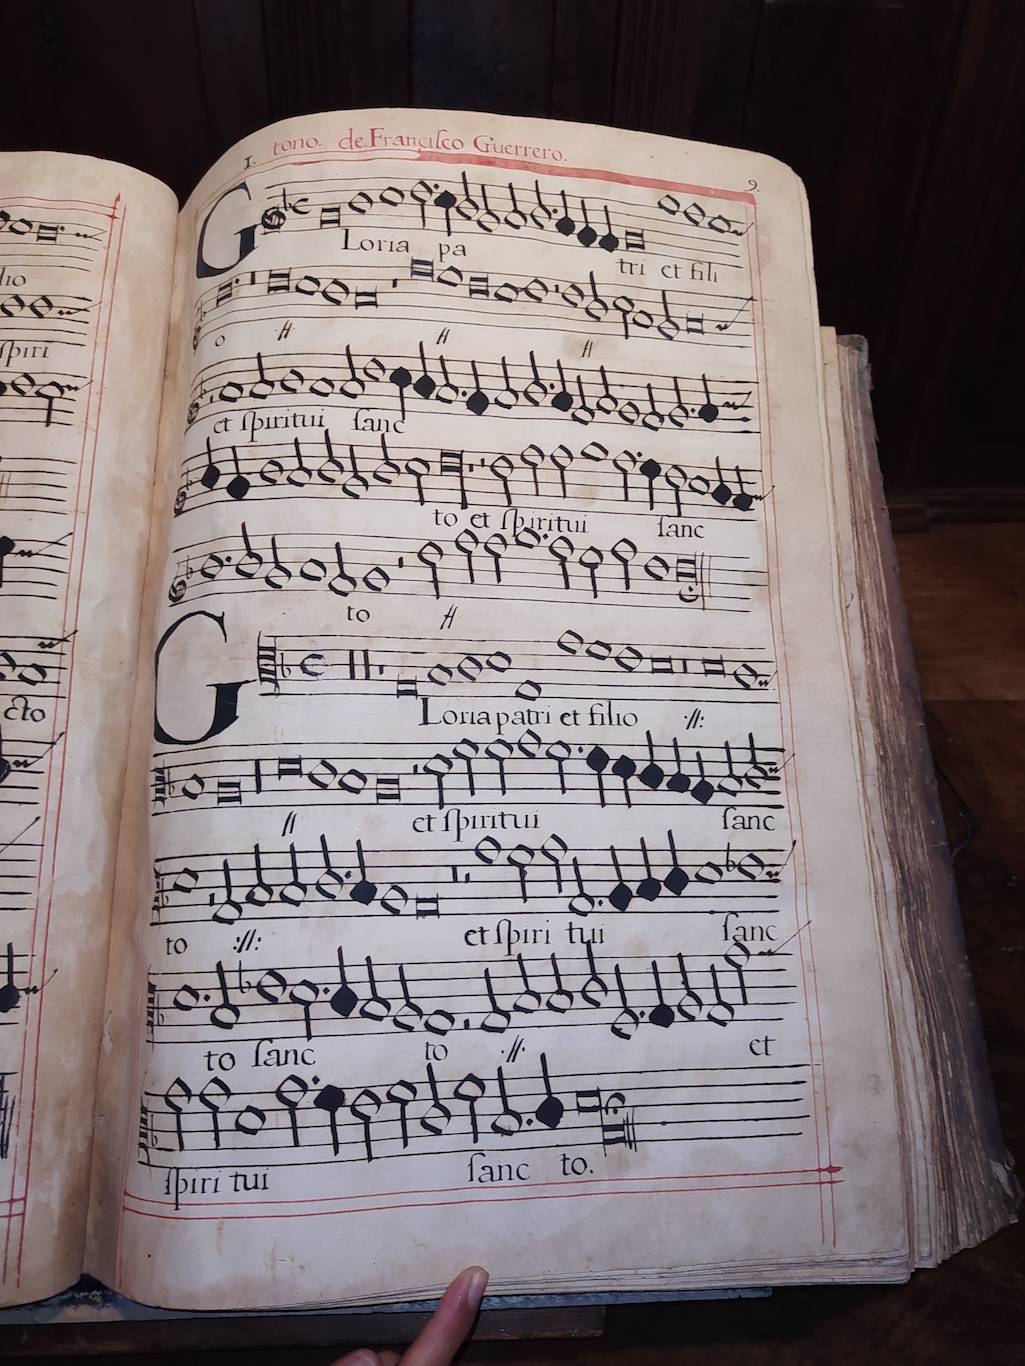 lio
ſpiri
cto
1. tono. de.Franciſco Guerrero.
9.
G
Loria pa tri et fili
o
et ſpiritui ſanc
to et ſpiritui ſanc
to
G
Loria patri et filio
et ſpiritui ſanc
to et ſpiri tui ſanc
to ſanc to et
ſpiri tui ſanc to.